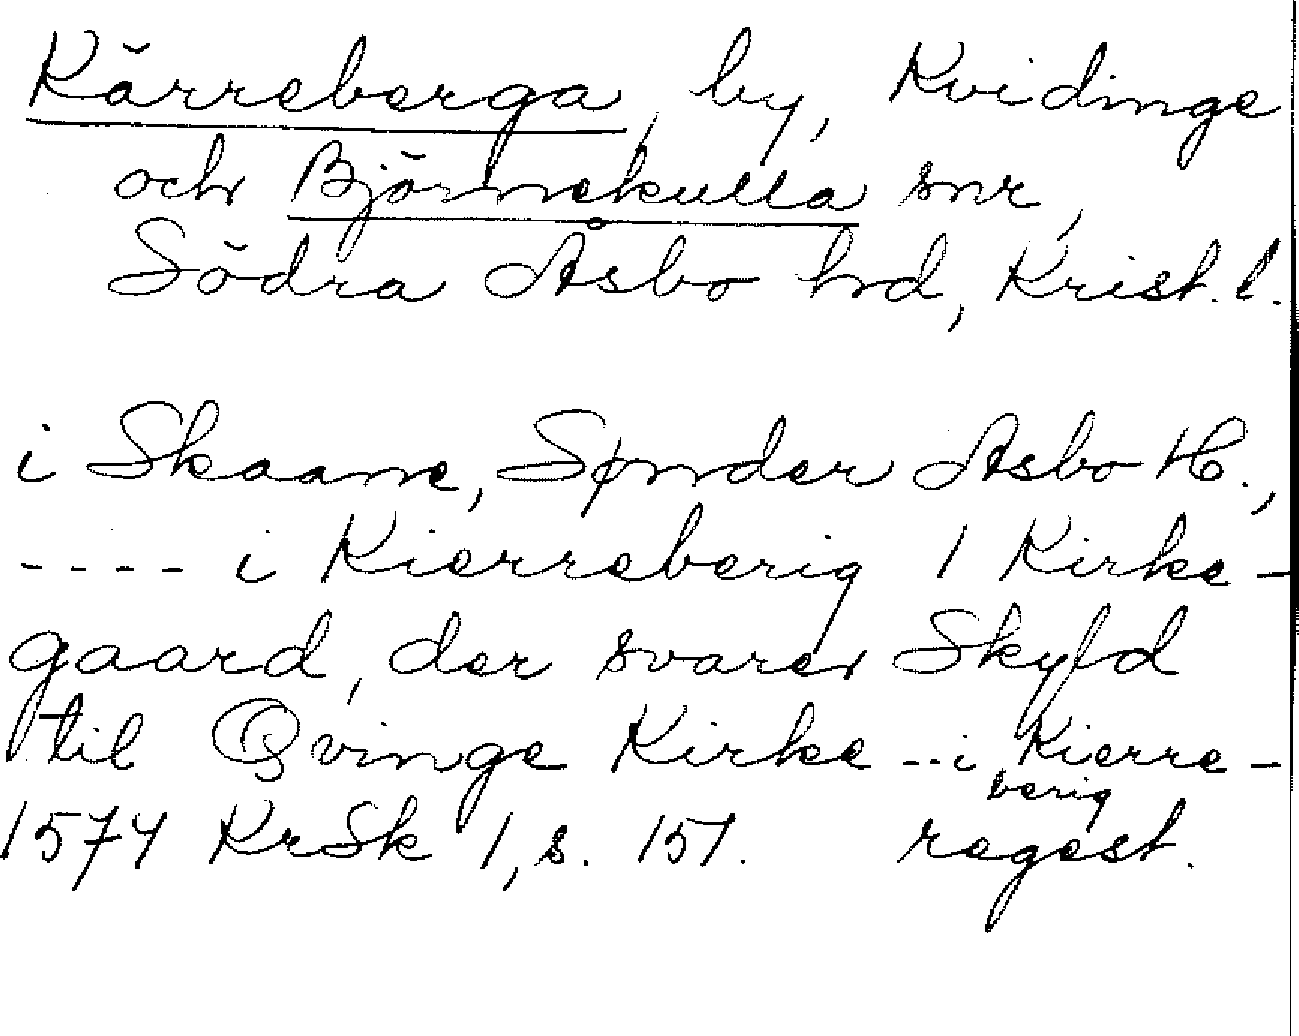 Kärreberga, by, Kvidinge
och Björnekulla snr,
Södra Åsbo hrd, Krist. l.
i Skaane, Sønder Asbo H.,
---- i Kierreberig 1 Kirke-
gaard, der svarer Skyld
til Qvinge Kirke -- i Kierre-
berig
1574 KrSk 1, s. 151. regest.